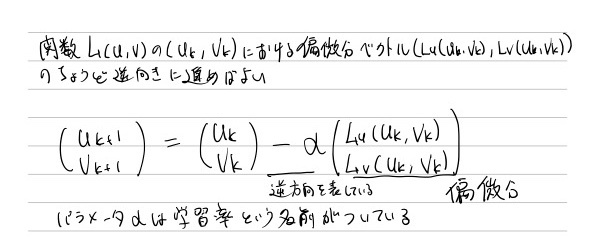 関数 L(u,v)の(uk, vk)における偏微分ベクトル(Lu(uk,vk), Lv(uk,vk))
のちょうど逆向きに進めばよい
(uk+1) = (uk) − α (Lu(uk, vk))
(vk+1) (vk) (Lv(uk, vk))
逆方向を表している 偏微分
パラメータαは学習率という名前がついている